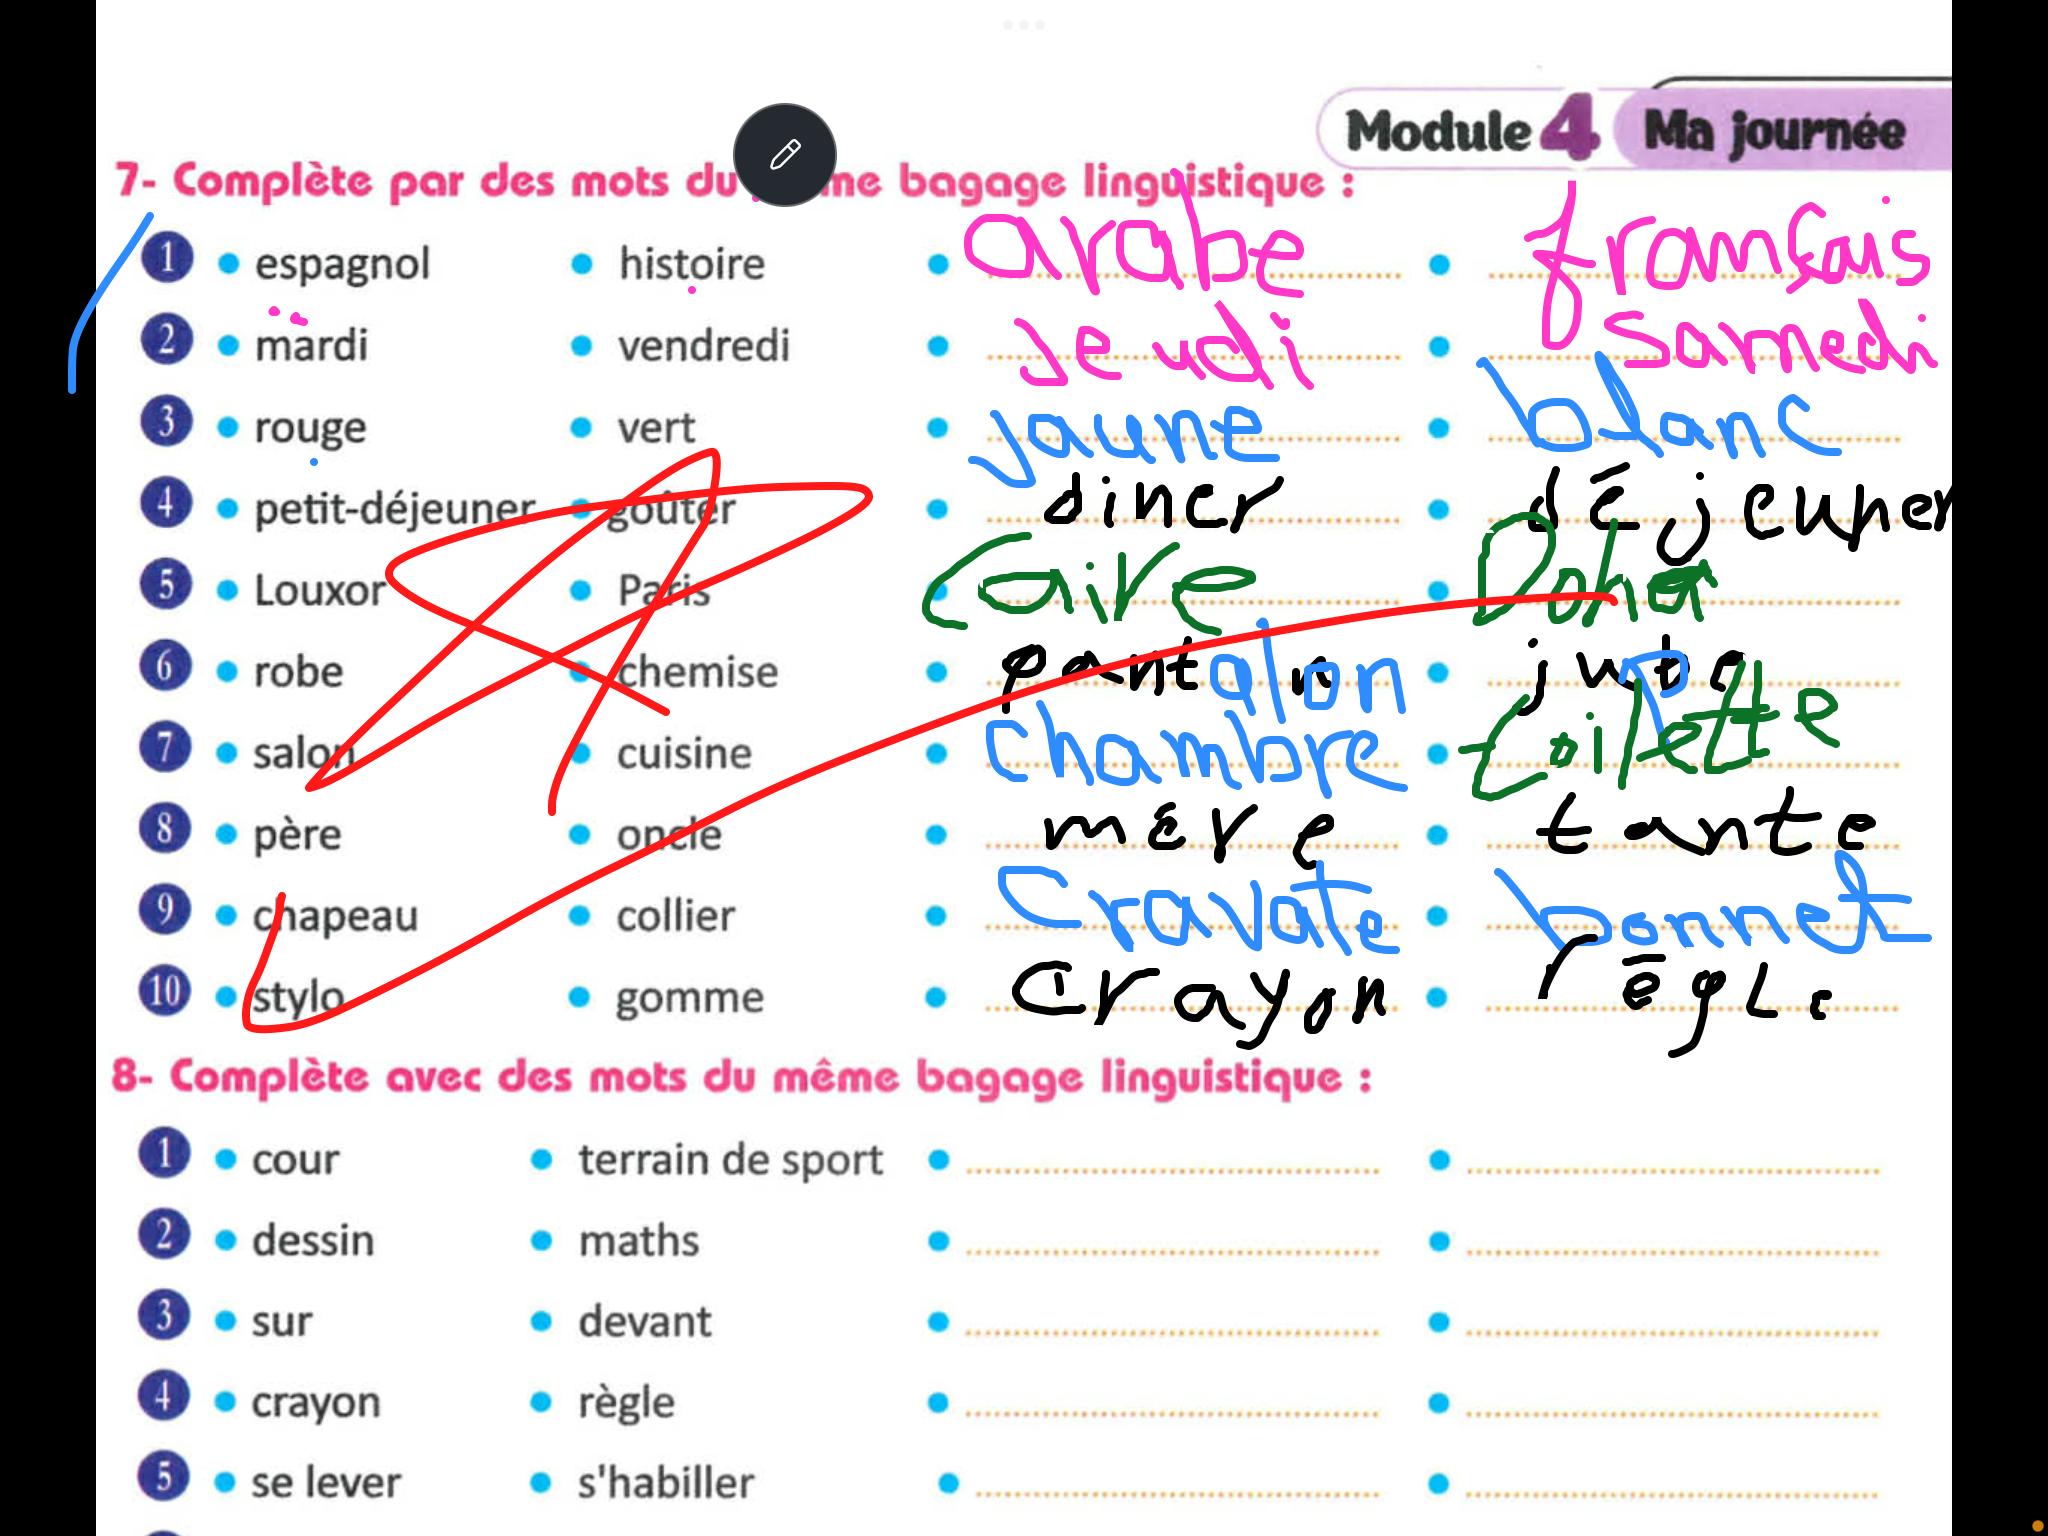 Module 4 Ma journée
7- Complète par des mots du même bagage linguistique :
1 • espagnol • histoire • arabe • français
2 • mardi • vendredi • jeudi • samedi
3 • rouge • vert • jaune • blanc
4 • petit-déjeuner • goûter • diner • déjeuner
5 • Louxor • Paris • Caire • Doha
6 • robe • chemise • pantalon • jupe
7 • salon • cuisine • chambre • toilette
8 • père • oncle • mère • tante
9 • chapeau • collier • cravate • bonnet
10 • stylo • gomme • crayon • règle
8- Complète avec des mots du même bagage linguistique :
1 • cour • terrain de sport • •
2 • dessin • maths • •
3 • sur • devant • •
4 • crayon • règle • •
5 • se lever • s'habiller • •